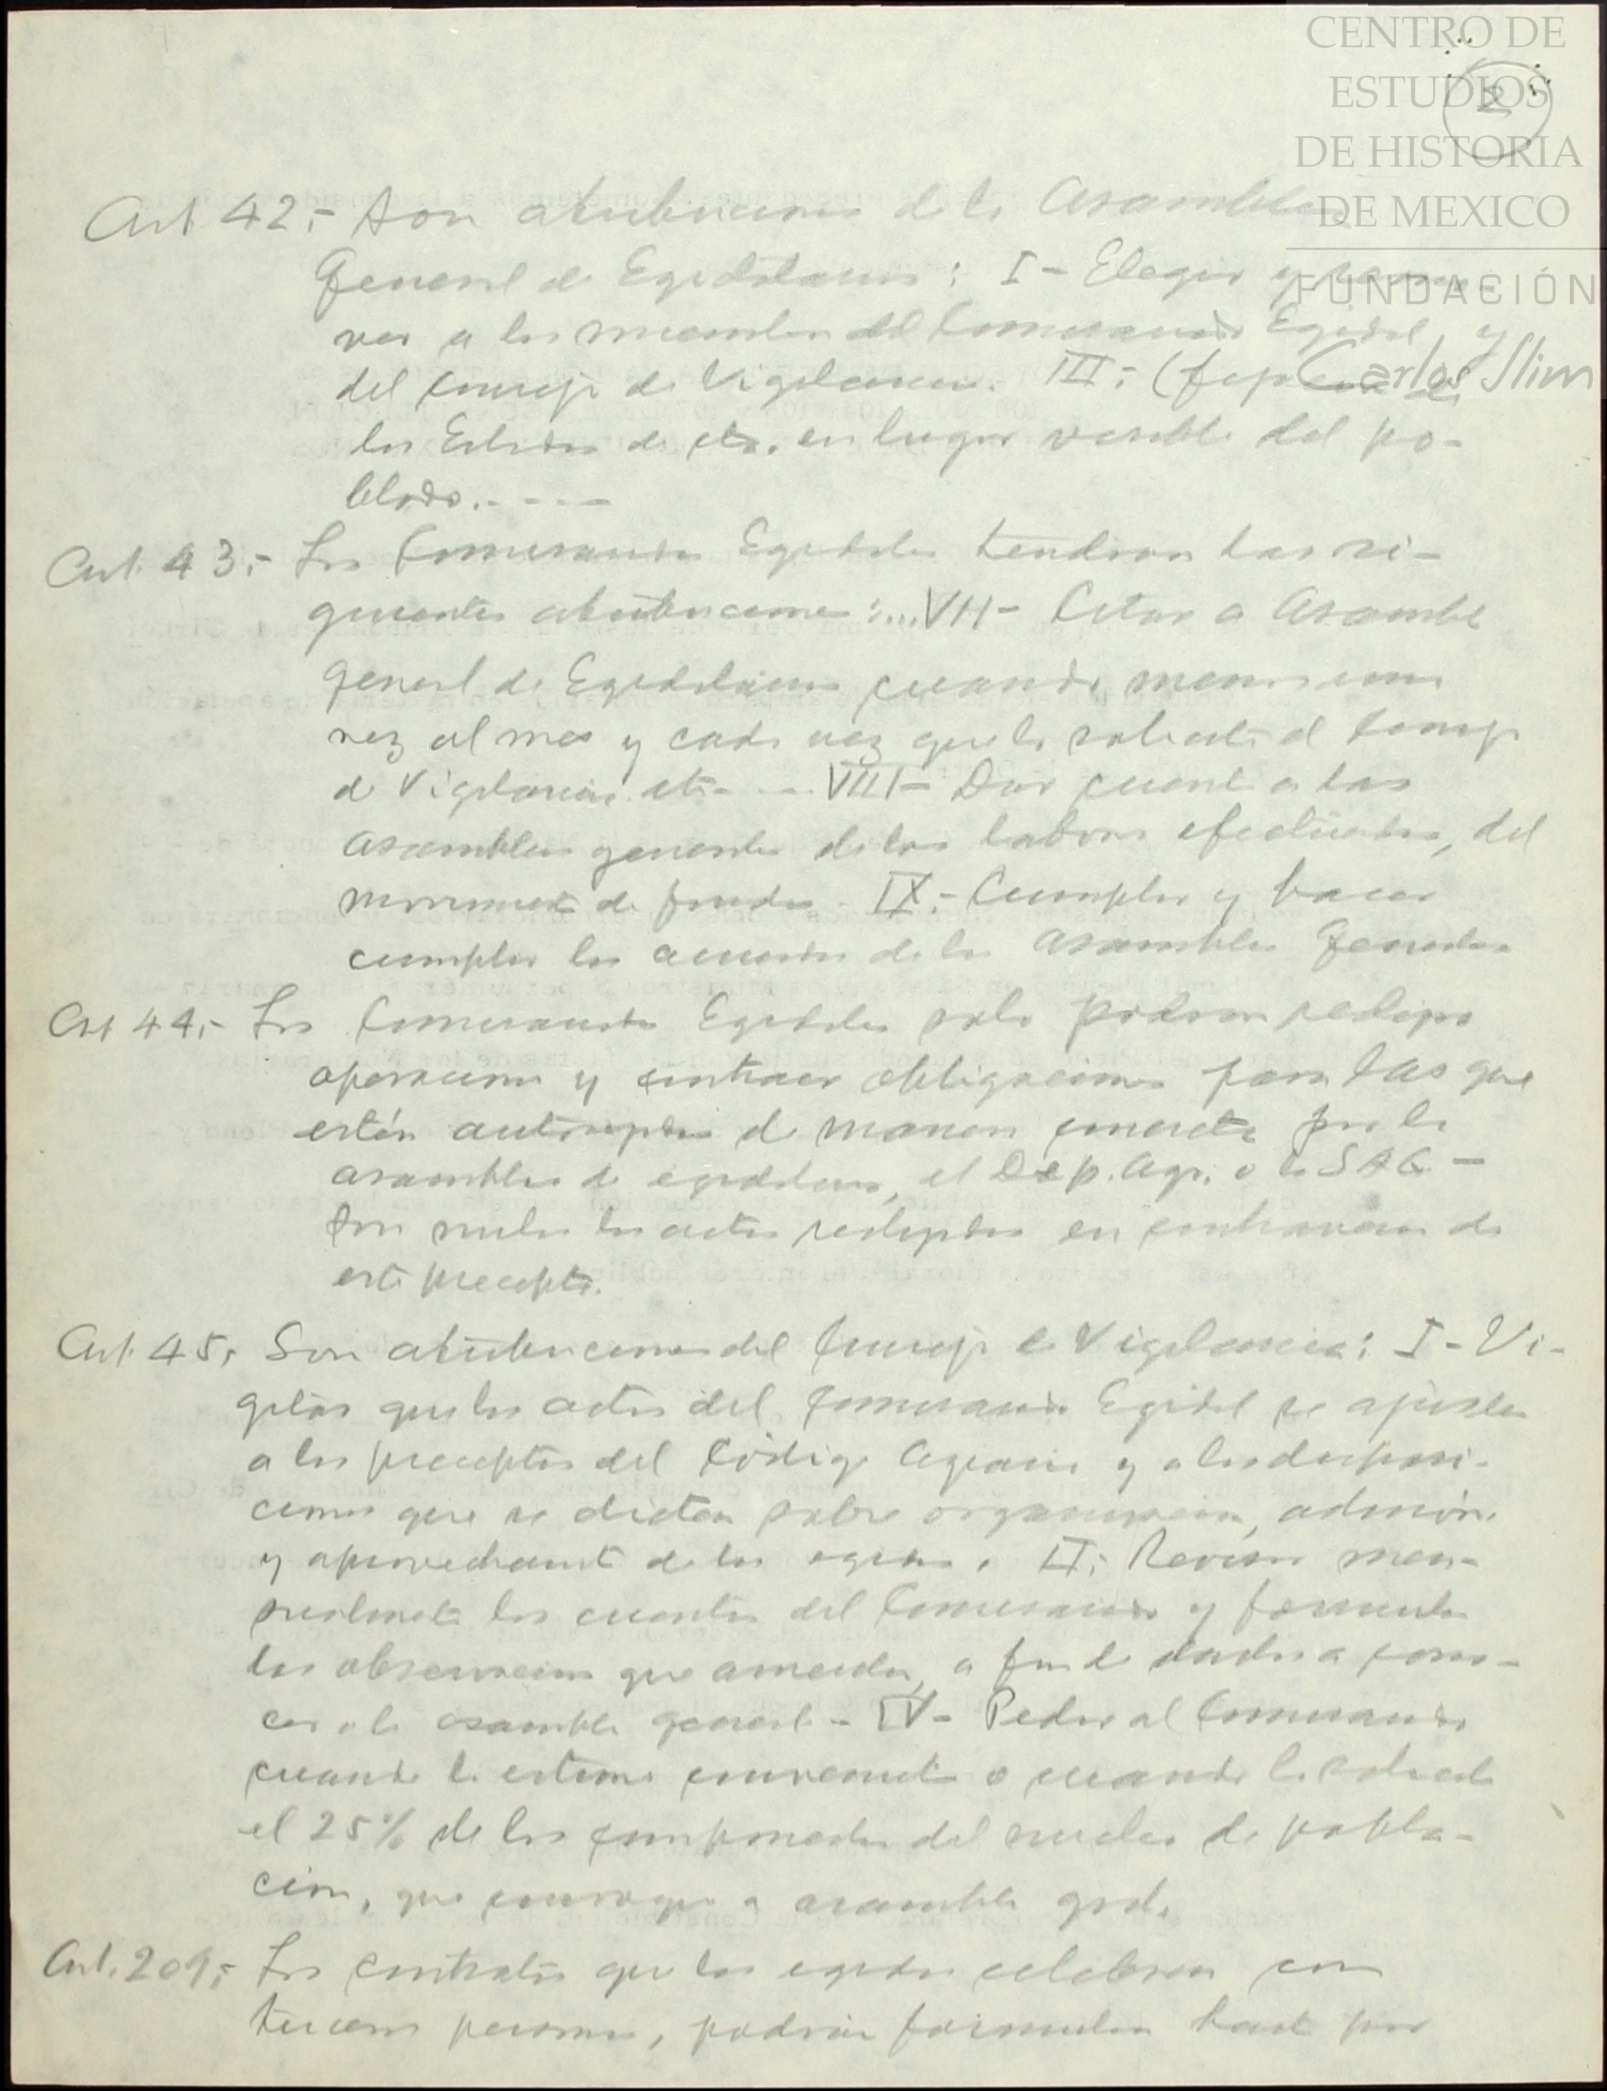 CENTRO DE
ESTUDIOS
DE HISTORIA
DE MEXICO
FUNDACIÓN
Carlos Slim
2
Art 42.- Son atribuciones de la Asamblea
General de Egidatarios: I - Elegir y remo-
ver a los miembros del Comisariado Egidal y
del Consejo de Vigilancia. III.-
los Estados de cta. en lugar visible del po-
blado.----
Art. 43.- Los Comisariados Egidales tendran las si-
guientes atribuciones:...VII- Citar a Asamblea
General de Egidatarios cuando menos una
vez al mes y cada vez que lo solicite el Consejo
de Vigilancia. etc- -- VIII- Dar cuenta a las
asambleas generales de las labores efectuadas, del
movimiento de fondos - IX.- Cumplir y hacer
cumplir los acuerdos de las Asambleas Generales
Art 44.- Los Comisariados Egidales solo podran realizar
operaciones y contraer obligaciones para las que
estén autorizados de manera concreta por la
asamblea de egidatarios, el Dep. Agr. o la SAG -
Son nulos los actos realizados en contravencion de
este precepto.
Art. 45.- Son atribuciones del Consejo de Vigilancia: I - Vi-
gilar que los actos del Comisariado Egidal se ajusten
a los preceptos del Código Agrario y a las disposi-
ciones que se dicten sobre organizacion, admión.
y aprovechamto de los egidos. II.- Revisar men-
sualmente las cuentas del Comisariado y formular
las observaciones que ameriten, a fin de darlas a cono-
cer a la asamblea general - IV - Pedir al Comisariado
cuando lo estime conveniente o cuando lo solicite
el 25% de los componentes del nucleo de pobla-
ción, que convoque a asamblea gral.
Art. 209.- Los contratos que los egidos celebren con
terceras personas, podrán formularse hasta por